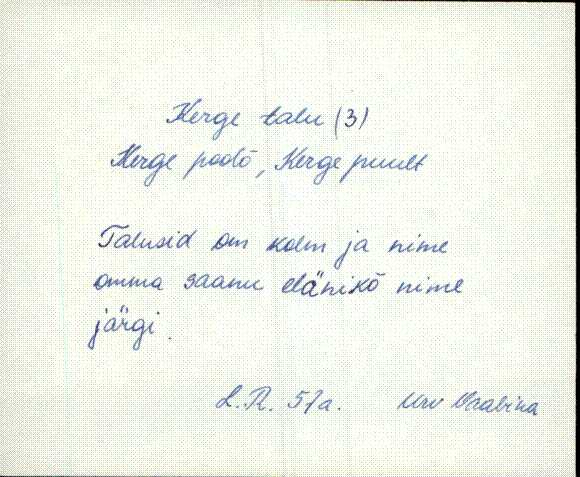 Kerge talu (3)
Kerge poolõ, Kerge puult
Talusid om kolm ja nime
omma saanu elänikõ nime
järgi.
L.R. 57a. Urv Vaabina